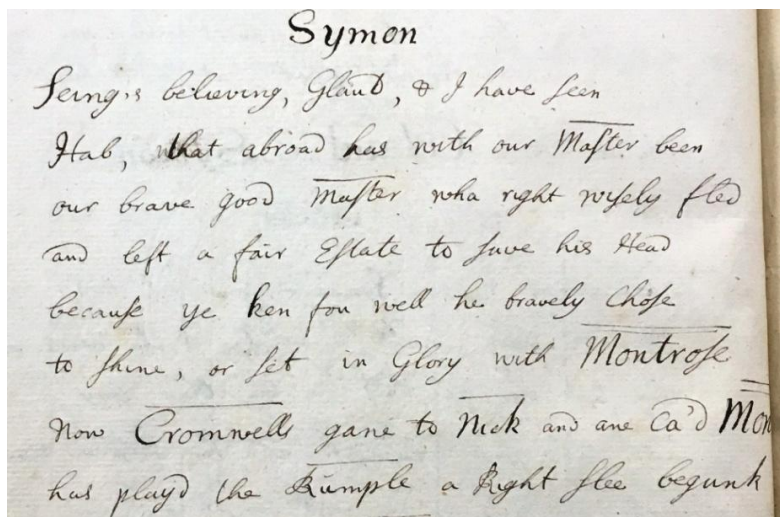 Symon
Seing's believing, Glaud, & I have seen
Hab, that abroad has with our Master been
our brave good Master wha right wisely fled
and left a fair Estate to save his Head
because ye ken fou well he bravely Chose
to shine, or set in Glory with Montrose
Now Cromwells gane to Nick and ane Ca'd Mon
has playd the Rumple a Right slee begunk